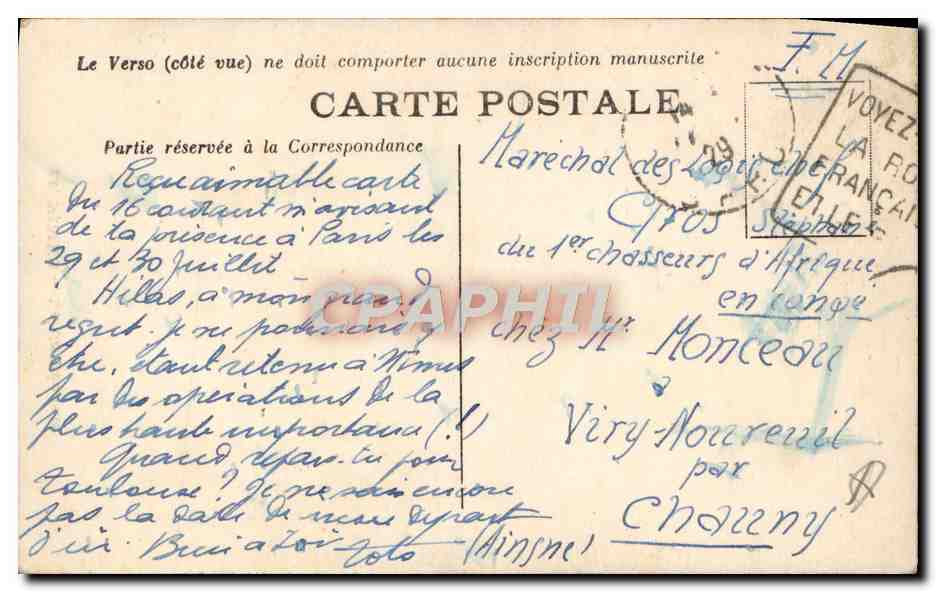 Le Verso (côté vue) ne doit comporter aucune inscription manuscrite
F. M
CARTE POSTALE
Partie réservée à la Correspondance
Reçu aimable carte
du 16 courant m'avisant
de ta présence à Paris les
29 et 30 Juillet
Hélas, à mon grand
regret je ne pourrais y
être, étant retenu à Nimes
par des opérations de la
plus haute importance (!)
Quand repars-tu pour
Toulouse ? Je ne sais encore
pas la date de mon départ
d'ici. Bien à toi Toto
Maréchal des Logis chef
Gros Stéphane
du 1er chasseurs d'Afrique
en congé
chez Mr. Monceau
à
Viry-Noureuil
par
Chauny
(Aingne)
29
VOYEZ
LA RO
FRANÇAI
ET LE
CPAPHIL